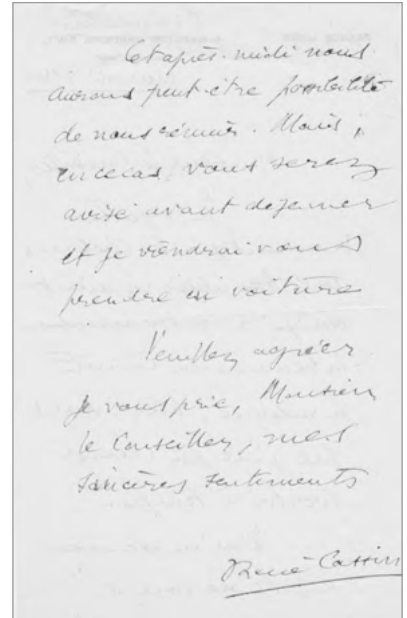 Cet après-midi nous
aurons peut-être possibilité
de nous réunir. Mais,
en ce cas, vous serez
avisé avant déjeuner
et je viendrai vous
prendre en voiture
Veuillez agréer
Je vous prie, Monsieur
le Conseiller, mes
sincères sentiments
René Cassin